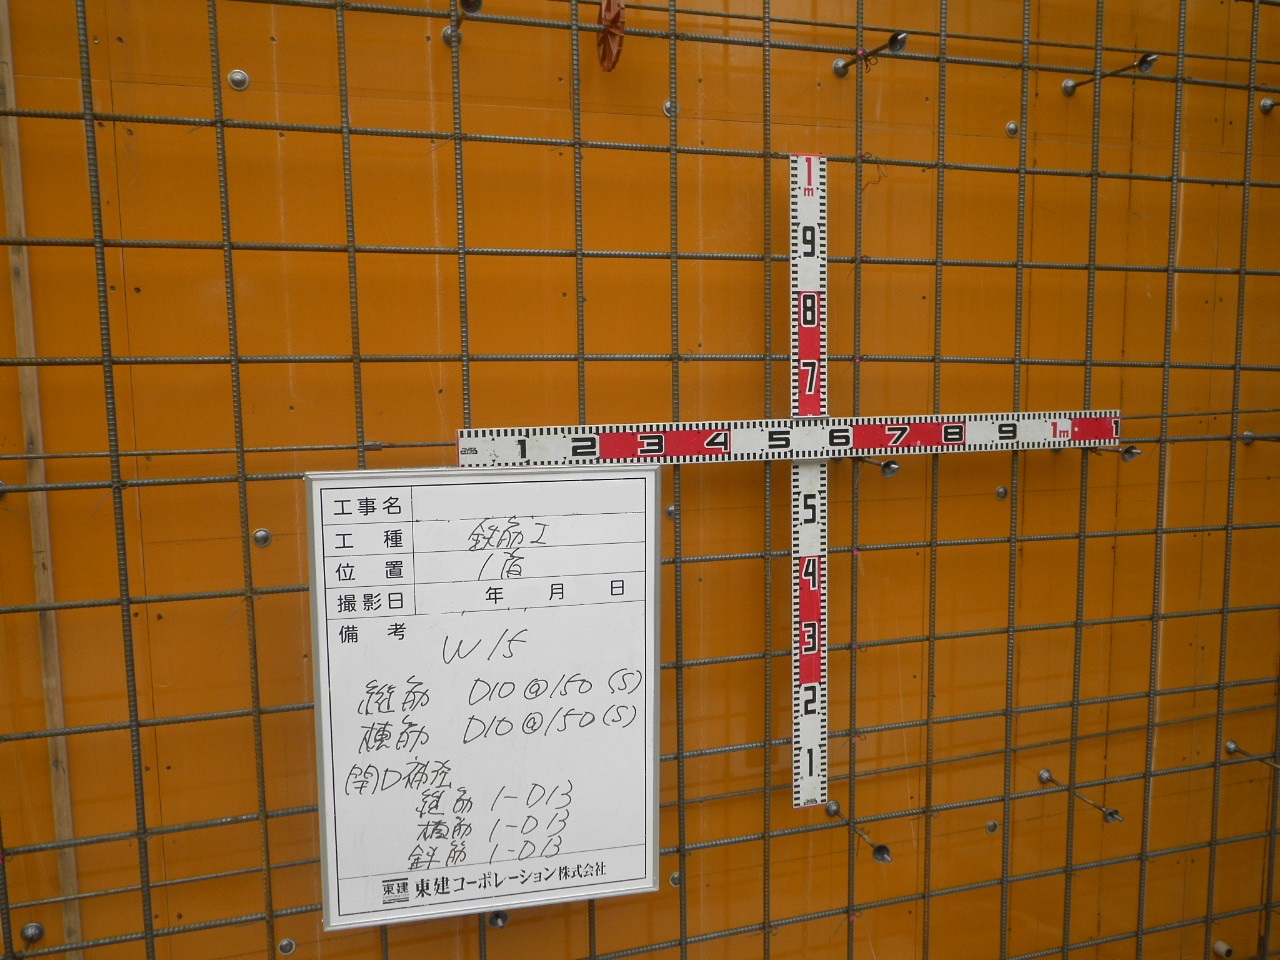 1m
9
8
7
1 2 3 4 5 6 7 8 9 1m 1
5
4
3
2
1
工事名
工 種 鉄筋工
位 置 1階
撮影日 年 月 日
備 考
W15
縦筋 D10@150(S)
横筋 D10@150(S)
開口補強
縦筋 1-D13
横筋 1-D13
斜筋 1-D13
東建 東建コーポレーション株式会社